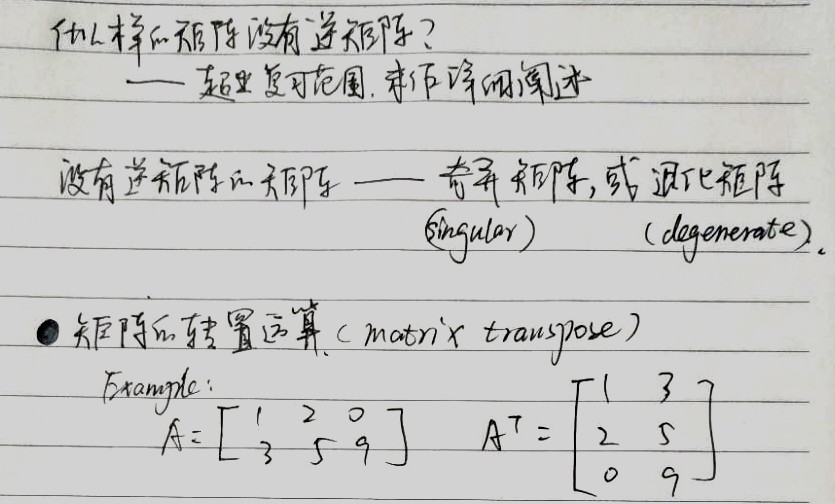 什么样的矩阵没有逆矩阵?
—— 超出复习范围,未作详细阐述
没有逆矩阵的矩阵 —— 奇异矩阵,或 退化矩阵
(singular) (degenerate).
● 矩阵的转置运算 (matrix transpose)
Example:
A = [ 1 2 0 A^T = [ 1 3
3 5 9 ] 2 5
0 9 ]